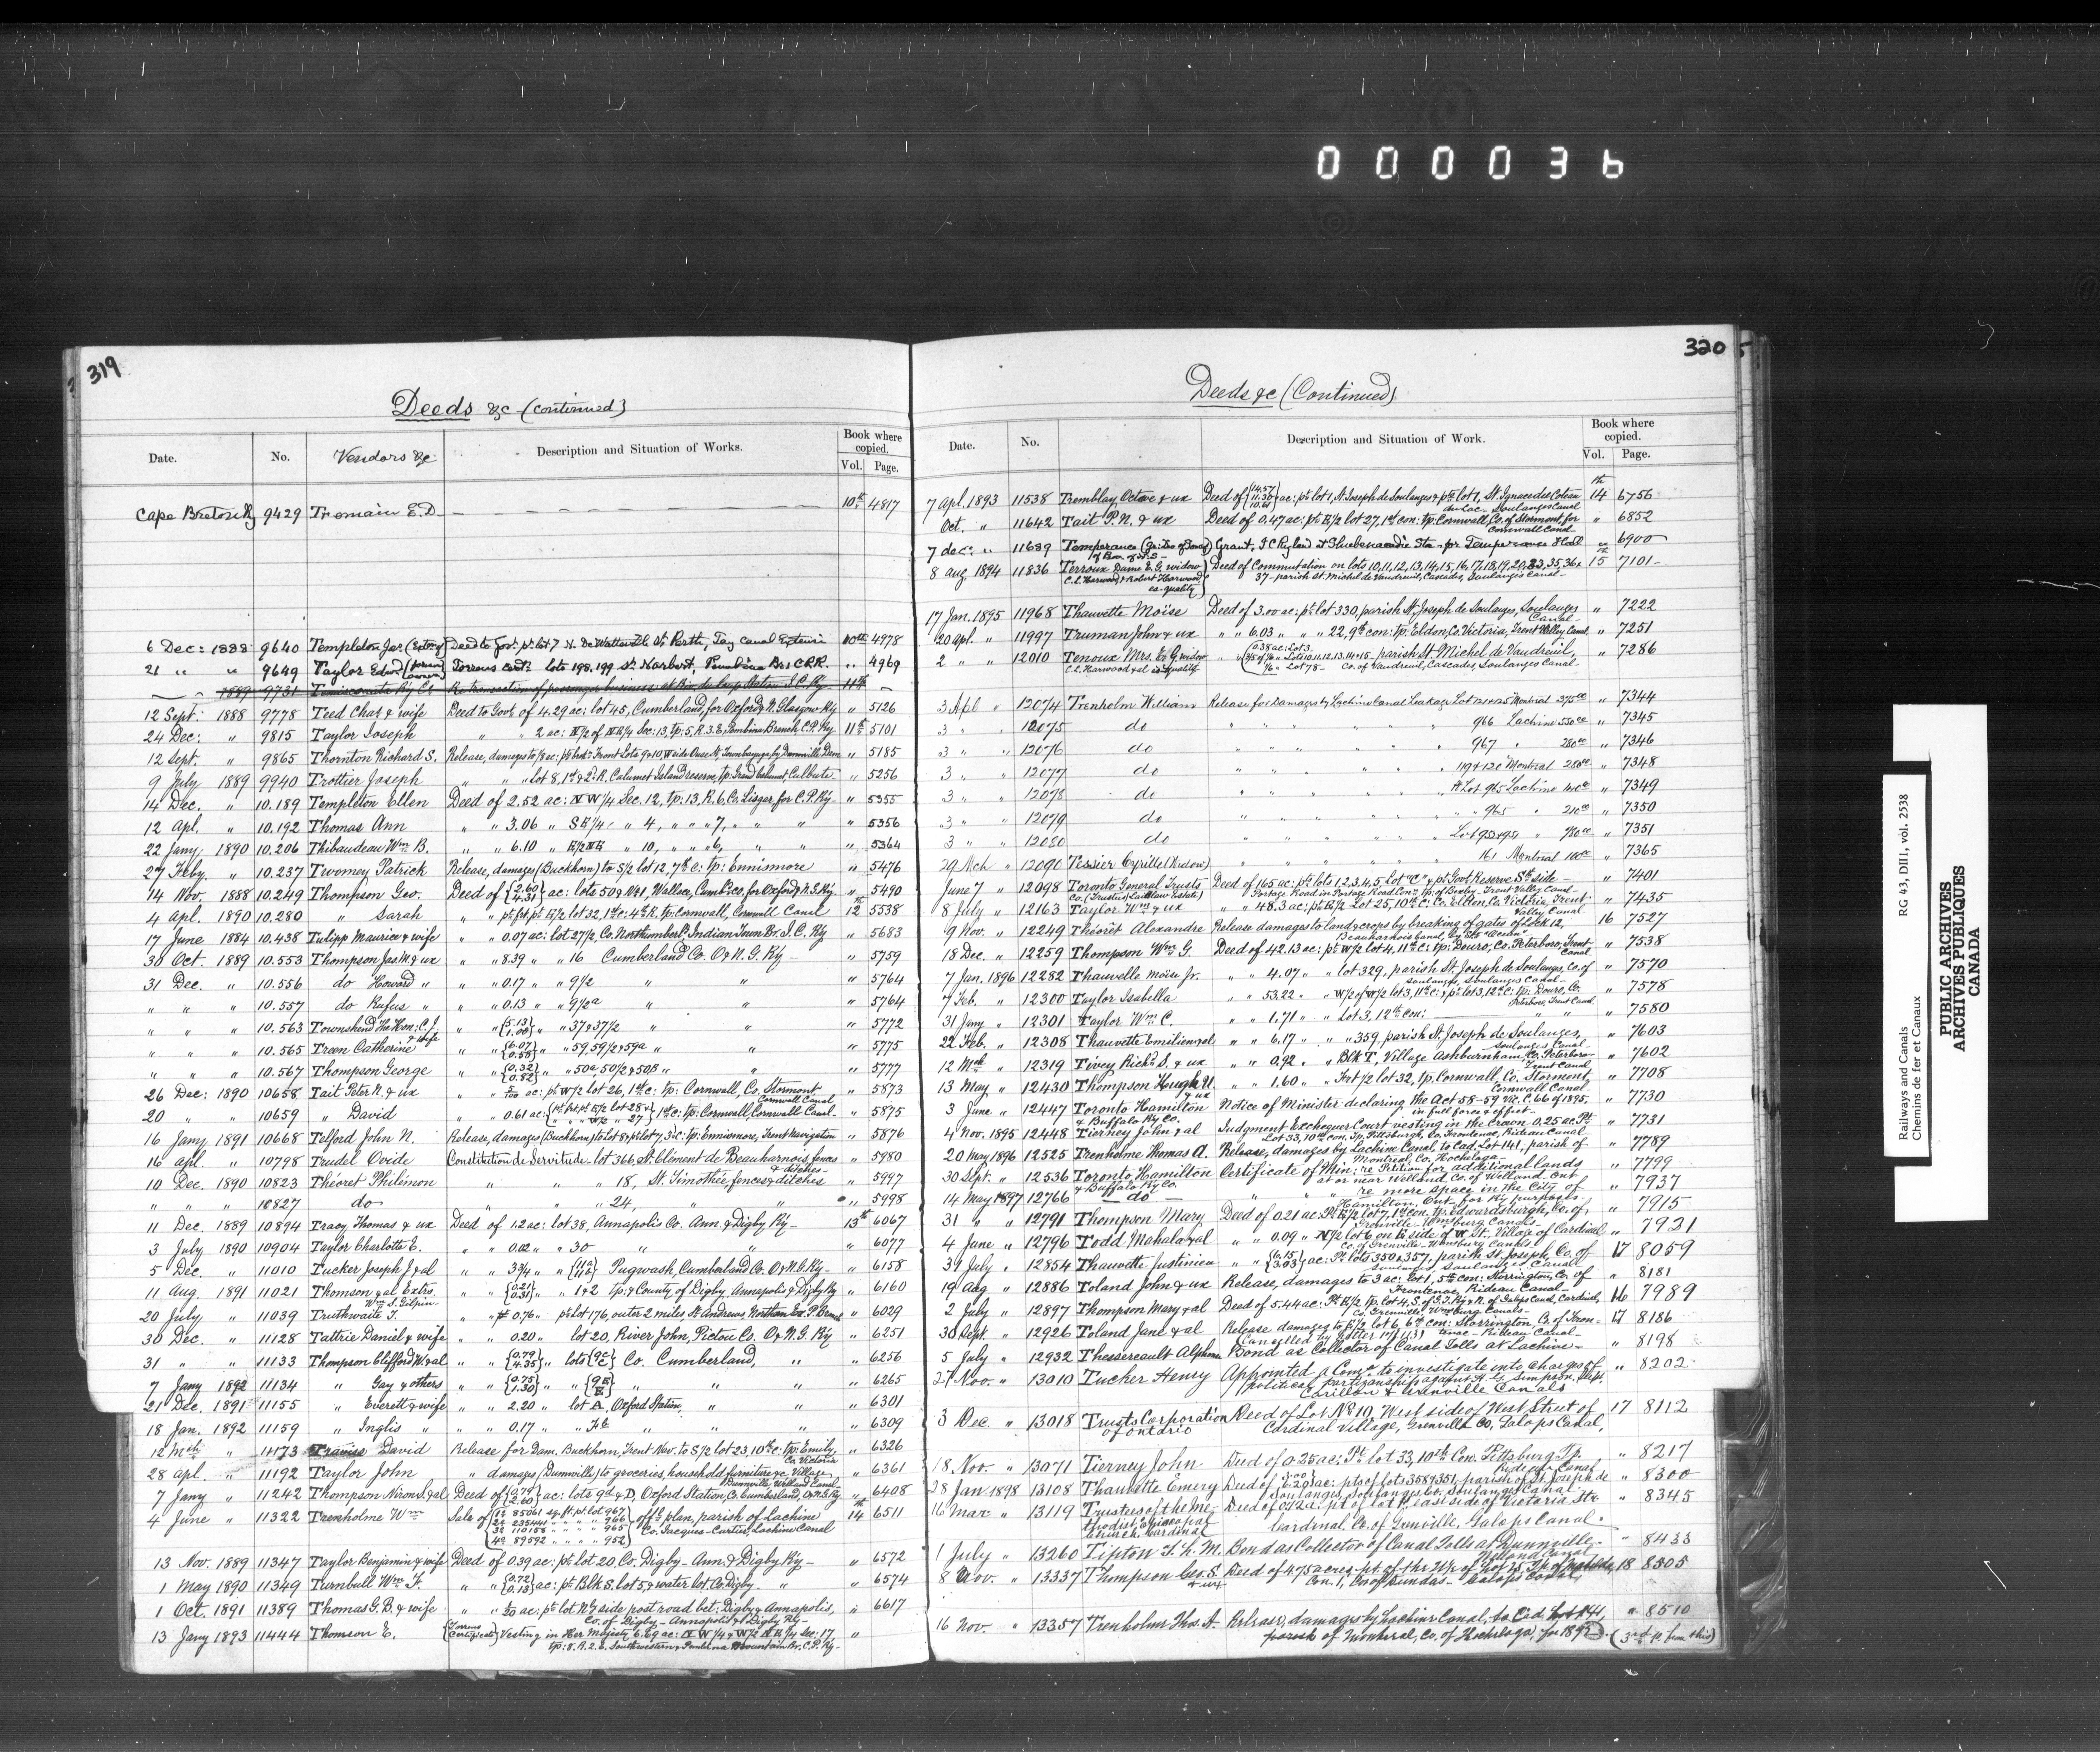 000036
319
Deeds &c (continued)
Date. No. Vendors &c Description and Situation of Works. Book where copied. Vol. Page.
Cape Breton Ry 9429 Tremain E.D. 10th 4817
6 Dec: 1888 9640 Templeton Jas. Deed to Govt. pt lot 7 N. Perth, Tay Canal 10th 4978
21 " " 9649 Taylor Edwd Torrens Cert: lots 198, 199 St. Norbert, Pembina Br: C.P.R. " 4969
1889 9731 Temiscouata Ry Co Re transaction of passenger business at Riv. du Loup Station I.C. Ry 11th
12 Sept: 1888 9778 Teed Chas & wife Deed to Govt of 4.29 ac: lot 45, Cumberland, for Oxford & N. Glasgow Ry " 5126
24 Dec: " 9815 Taylor Joseph " " 2 ac: N/2 of NE/4 Sec: 13, tp: 5, R. 3. E, Pembina Branch C.P. Ry 11th 5101
12 Sept. " 9865 Thornton Richard S. Release, damages to 1/8 ac: Front Lots 9 & 10, W side " 5185
9 July 1889 9940 Trottier Joseph " " " Lot 8, 1st & 2d R. Calumet Island reserve, tp: Grand Calumet, Culbute " 5256
14 Dec. " 10.189 Templeton Ellen Deed of 2.52 ac: NW 1/4 Sec. 12, tp: 13, R. 6, Co. Lisgar, for C.P. Ry " 5355
12 Apl. " 10.192 Thomas Ann " " 3.06 " SE 1/4 " 4, " " " 7, " " " " 5356
22 Jany 1890 10.206 Thibaudeau Wm B. " " 6.10 " E/2 NE " 10, " " " 6, " " " 5364
27 Feby. " 10.237 Twomey Patrick Release, damages (Buckhorn) to S/2 lot 12, 7th c: tp: Ennismore " 5476
14 Nov. 1888 10.249 Thompson Geo. Deed of {2.60 4.31} ac: lots 50 & 41, Wallace, Cumbd Co, for Oxford & N.G. Ry " 5490
4 Apl. 1890 10.280 " Sarah " " pt frt pt E/2 lot 32, 1st c: 4th R. tp: Cornwall, Cornwall Canal 12th 5538
17 June 1884 10.438 Tulipp Maurice & wife " " 0.07 ac: lot 27/2, Co. Northumberld Indian Town Br. I.C. Ry " 5683
30 Oct. 1889 10.553 Thompson Jas M & ux " " 8.39 " " 16 Cumberland Co. O & N.G. Ry " 5759
31 Dec. " 10.556 do Howard " " " 0.17 " " 9 1/2 " " " 5764
" " " 10.557 do Rufus " " " 0.13 " " 9 1/2 a " " " 5764
" " " 10.563 Townshend The Hon: C. J. & wife " " {5.13 1.00} " " 37 & 37/2 " " " 5772
" " " 10.565 Treen Catherine " " {6.07 0.55} " " 59, 59/2 & 59a " " " 5775
" " " 10.567 Thompson George " " {0.32 0.82} " " 50a 50/2 & 50B " " " 5777
26 Dec: 1890 10658 Tait Peter R. & ux " " ac: pt W/2 lot 26, 1st c: tp: Cornwall, Co. Stormont Cornwall Canal " 5873
20 " " 10659 " David " " 0.61 ac: {pt frt pt E/2 lot 28 & " " " W/2 " 27} 1st c: tp: Cornwall, Cornwall Canal " 5875
16 Jany 1891 10668 Telford John N. Release, damages (Buckhorn) to lot 8 & pt lot 7, 3d c: tp: Ennismore, Trent Navigation " 5876
16 Apl. " 10798 Trudel Ovide Constitution de Servitude lot 366, St. Clement de Beauharnois, fences & ditches " 5980
10 Dec. 1890 10823 Théoret Philémon " " " 18, St. Timothée, fences & ditches " 5997
" " " 10827 do " " " 24, " " " 5998
11 Dec. 1889 10894 Tracy Thomas & ux Deed of 1.2 ac: lot 38, Annapolis Co. Ann. & Digby Ry 13th 6067
3 July 1890 10904 Taylor Charlotte E. " " 0.02 " " 30 " " " 6077
5 Dec. " 11010 Tucker Joseph J & al " " 3 3/4 " " Pugwash, Cumberland Co. O & N.G. Ry " 6158
11 Aug. 1891 11021 Thomson & al Extrs. Wm S. Gilpin " " {0.21 0.31} " " 1 & 2 tp: & County of Digby, Annapolis & Digby Ry " 6160
20 July " 11039 Truthwaite T. " " 0.76 " pt lot 176 outer 2 miles St Andrews, Northern Ex. P. Branch " 6029
30 Dec. " 11128 Tattrie Daniel & wife " " 0.20 " lot 20, River John, Pictou Co. O & N.G. Ry " 6251
31 " " 11133 Thompson Clifford W & al " " {0.79 4.35} " lots {9c C} Co. Cumberland, " " 6256
7 Jany 1892 11134 " Gay & others " " {0.75 1.30} " " {9E E} " " " " 6265
21 Dec. 1891 11155 " Everett & wife " " 2.20 " lot A, Oxford Station, " " " 6301
18 Jan. 1892 11159 " Inglis " " " 0.17 " " " " " 6309
12 Mch " 11173 Travis David Release for Dam. Buckhorn, Trent Nav. to S/2 lot 23, 10th c: tp: Emily, Co. Victoria " 6326
28 Apl. " 11192 Taylor John " damages (Dunnville) to groceries, household furniture &c Village Dunnville, Welland Canal " 6361
7 Jany " 11242 Thompson Nixon & al Deed of {0.79 2.60} ac: lots 9d & D, Oxford Station, Co. Cumberland, O & N.G. Ry " 6408
4 June " 11322 Trenholme Wm Sale of {1º 85061 sq. ft. pt. lot 967 2º 235441 " " " " 966 3º 110158 " " " " 965 4º 89592 " " " " 952} off'l plan, parish of Lachine Co. Jacques-Cartier, Lachine Canal 14th 6511
13 Nov. 1889 11347 Taylor Benjamin & wife Deed of 0.39 ac: pt lot 20, Co. Digby - Ann. & Digby Ry " 6572
1 May 1890 11349 Turnbull Wm F. " " {0.72 0.13} ac: pt Blk S. lot 5, & water lot, Co. Digby " " 6574
1 Oct. 1891 11389 Thomas G. B. & wife " " ac: pt lot N'ly side post road bet: Digby & Annapolis, Co. of Digby - Annapolis & Digby Ry " 6617
13 Jany 1893 11444 Thomson E. (Torrens Certificate) Vesting in Her Majesty 6.69 ac: NW 1/4 & W/2 NE 1/4 Sec: 17, tp: 8, R. 2. E, Southwestern & Pembina Mountain Br, C.P. Ry "
320
Deeds &c (Continued)
Date. No. Description and Situation of Work. Book where copied. Vol. Page.
7 Apl. 1893 11538 Tremblay Octave & ux Deed of {14.57 11.30 10.61} ac: pt lot 1, St Joseph de Soulanges & pt lot 1, St. Ignace des Coteau du Lac - Soulanges Canal 14th 6756
Oct. " 11642 Tait P. N. & ux Deed of 0.47 ac: pt E/2 lot 27, 1st con: tp: Cornwall, Co. of Stormont, for Cornwall Canal " 6852
7 dec: " 11689 Temperance Grant, I C Ry land at Shubenacadie Sta - for Temperance Hall " 6900
8 aug 1894 11836 Terroux Dame E. G. widow C. L. Harwood & Robert Harwood es-quality Deed of Commutation on lots 10, 11, 12, 13, 14, 15, 16, 17, 18, 19, 20, 33, 35, 36 & 37 - parish St. Michel de Vaudreuil, Cascades, Soulanges Canal 15th 7101
17 Jan. 1895 11968 Thauvette Moïse Deed of 3.00 ac: pt lot 330, parish St. Joseph de Soulanges, Soulanges Canal " 7222
20 Apl. " 11997 Truman John & ux " " 6.03 " " " 22, 9th con: tp: Eldon, Co. Victoria, Trent Valley Canal " 7251
2 " " 12010 Tenoux Mrs. E. G. widow C. L. Harwood & al es quality " " 0.38 ac: Lot 3 Lots 10, 11, 12, 13, 14 & 15 - parish St. Michel de Vaudreuil, Lot 78 - Co. of Vaudreuil, Cascades, Soulanges Canal " 7286
3 Apl " 12074 Trenholm William Release for Damages by Lachine Canal Leakage Lot 121 & 125 Montreal " 7344
3 " " 12075 do " " " " " 966 Lachine 550.00 " 7345
3 " " 12076 do " " " " " 967 " 280.00 " 7346
3 " " 12077 do " " " " " 119 & 120 Montreal " 7348
3 " " 12078 do " " " " " pt Lot 965 Lachine " 7349
3 " " 12079 do " " " " " 965 " 210.00 " 7350
3 " " 12080 do " " " " " " 7351
29 Mch " 12090 Tessier Cyrille (Widow) " " " " " 161 Montreal 100.00 " 7365
June 7 " 12098 Toronto General Trusts Co. (Trustees) Laidlaw Estate Deed of 165 ac: pts lots 1, 2, 3, 4, 5, Lot "C" & pt Govt Reserve Sth side - Portage Road in Portage Road Con. Tp. of Bexley - Trent Valley Canal " 7401
8 July " 12163 Taylor Wm & ux " " 48.3 ac: pt E/2 Lot 25, 10th c: Co. Eldon, Co. Victoria, Trent Valley Canal " 7435
9 Nov. " 12249 Théoret Alexandre Release damages to land & crops by breaking of gates of Lock 12, Beauharnois Canal, by Str "Ocean" 16 7527
18 Dec. " 12259 Thompson Wm G. Deed of 42.13 ac: pt W/2 lot 4, 11th c: tp: Douro, Co. Peterboro, Trent Canal " 7538
7 Jan. 1896 12282 Thauvette Moïse Jr. " " 4.07 " " lot 329, parish St. Joseph de Soulanges, Co. of Soulanges, Soulanges Canal " 7570
7 Feb. " 12300 Taylor Isabella " " 53.22 " " W/2 of W/2 lot 3, 11th c: & pt lot 3, 12th c: tp: Douro, Co. Peterboro, Trent Canal " 7578
31 Jany " 12301 Taylor Wm C. " " 1.71 " " Lot 3, 12th con: " " " 7580
22 Feb. " 12308 Thauvette Emilien & al " " 6.17 " " " 359, parish St. Joseph de Soulanges, Soulanges Canal " 7603
12 Mch " 12319 Tivey Richd S. & ux " " 0.92 " " Blk T, Village Ashburnham, Co. Peterboro Trent Canal " 7602
13 May " 12430 Thompson Hugh U. & ux " " 1.60 " " Frt 1/2 lot 32, tp. Cornwall, Co. Stormont, Cornwall Canal " 7708
3 June " 12447 Toronto Hamilton & Buffalo Ry Co. Notice of Minister declaring the Act 58-59 Vic. C. 66 of 1895, in full force & effect " 7730
4 Nov. 1895 12448 Tierney John & al Judgment Exchequer Court vesting in the Crown 0.25 ac. Pt Lot 33, 10th con. Tp. Pittsburgh, Co. Frontenac, Rideau Canal " 7731
20 May 1896 12525 Trenholme Thomas A. Release, damages by Lachine Canal, to Cad. Lot 141, parish of Montreal, Co. Hochelaga " 7789
30 Sept. " 12536 Toronto Hamilton & Buffalo Ry Co. Certificate of Min: re Petition for additional lands at or near Welland, Co. of Welland, Ont " 7799
14 May 1897 12766 do " " re more space in the City of Hamilton, Ont., for Ry purposes " 7937
31 " " 12791 Thompson Mary Deed of 0.21 ac: Pt E/2 lot 7, 1st con. tp: Edwardsburgh, Co. of Grenville - Wmsburg Canals " 7915
4 June " 12796 Todd Mahala & al " " 0.09 " N/2 lot 6 on E side of W St. Village of Cardinal Co. of Grenville - Wmsburg Canals " 7921
31 July " 12854 Thauvette Justinien " " {6.15 3.03} ac: Pt lots 350 & 357, parish St. Joseph, Co. of Soulanges, Soulanges Canal 17 8059
19 Aug " 12886 Toland John & ux Release, damages to 3 ac: Lot 1, 5th con: Storrington, Co. of Frontenac, Rideau Canal " 8181
2 July " 12897 Thompson Mary & al Deed of 5.44 ac: Pt E/2 tp. lot 4, S. of G.T. Ry & N. of Galops Canal, Cardinal, Co. Grenville, Wmsburg Canals 16 7989
30 Sept. " 12926 Toland Jane & al Release damages to E/2 lot 6, 6th con: Storrington, Co. of Frontenac - Rideau Canal (Cancelled by letter 171131) 17 8186
5 July " 12932 Thessereault Alphonse Bond as Collector of Canal Tolls at Lachine " 8198
27 Nov. " 13010 Tucker Henry Appointed a Comr to investigate into charges of political partizanship against H. G. Simpson, Supt. Carillon & Grenville Canals " 8202
3 Dec. " 13018 Trusts Corporation of Ontario Deed of Lot No 10, West side of West Street of Cardinal Village, Grenville Co, Galops Canal, 17 8112
18 Nov. " 13071 Tierney John Deed of 0.25 ac, Pt lot 33, 10th Con. Pittsburg Tp. Rideau Canal " 8217
28 Jan 1898 13108 Thauvette Emery Deed of ac: pts of lots 358 & 351, parish of St. Joseph de Soulanges, Soulanges Co. Soulanges Canal " 8300
16 Mar " 13119 Trustees of the Methodist Episcopal Church Cardinal Deed of ac: pt of lot east side of Victoria Str. Cardinal, Co. of Grenville, Galops Canal " 8345
1 July " 13260 Tipton T. L. M. Bond as Collector of Canal Tolls at Dunnville Welland Canal " 8433
8 Nov. " 13337 Thompson Geo. S. & ux Deed of 4.75 acres pt. of the of Lot Tp of Matilda, Con. 1, Co. of Dundas - Galops Canal, 18 8305
16 Nov. " 13357 Trenholme Thos. A. Release, damages by Lachine Canal, to Cad. Lot 141, parish of Montreal, Co. of Hochelaga, for 1897. " 8510
(3rd p. from this)
Railways and Canals RG 43, DIII1, vol. 2538
Chemins de fer et Canaux
PUBLIC ARCHIVES
ARCHIVES PUBLIQUES
CANADA